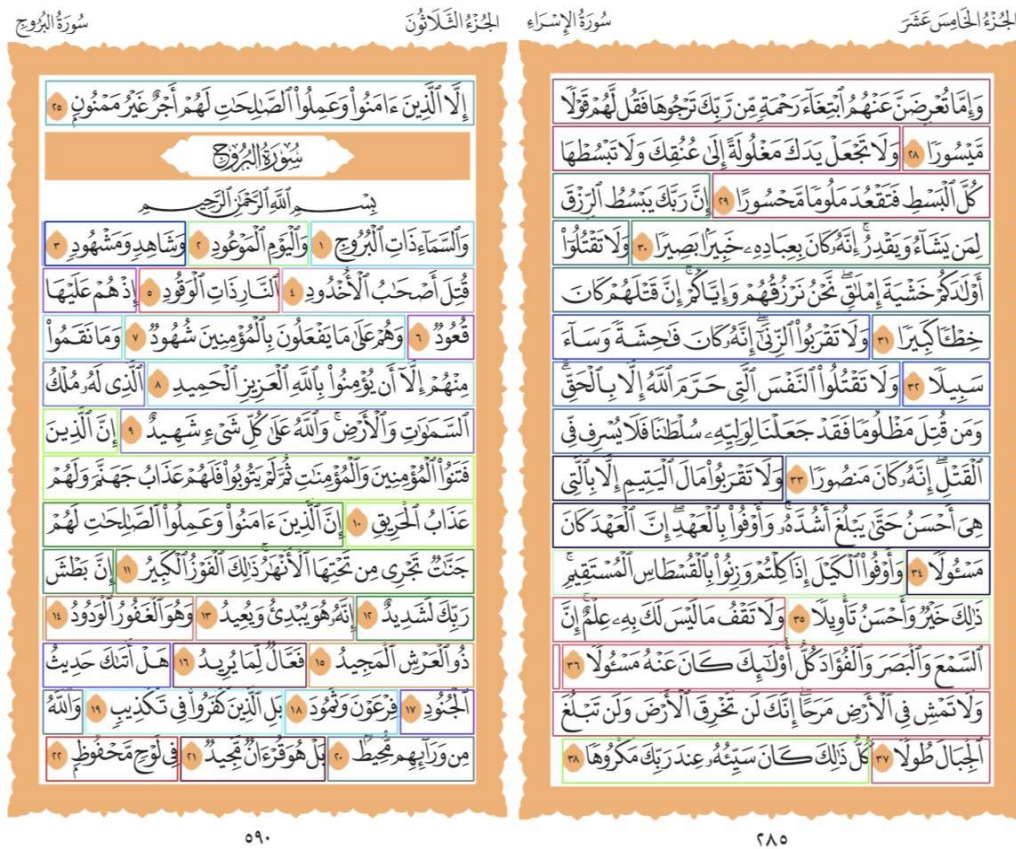 الجُزْءُ الخَامِسَ عَشَرَ
سُورَةُ الإِسْرَاءِ
وَإِمَّا تُعْرِضَنَّ عَنْهُمُ ٱبْتِغَآءَ رَحْمَةٍ مِّن رَّبِّكَ تَرْجُوهَا فَقُل لَّهُمْ قَوْلًا
مَّيْسُورًا ٢٨ وَلَا تَجْعَلْ يَدَكَ مَغْلُولَةً إِلَىٰ عُنُقِكَ وَلَا تَبْسُطْهَا
كُلَّ ٱلْبَسْطِ فَتَقْعُدَ مَلُومًا مَّحْسُورًا ٢٩ إِنَّ رَبَّكَ يَبْسُطُ ٱلرِّزْقَ
لِمَن يَشَآءُ وَيَقْدِرُ ۚ إِنَّهُۥ كَانَ بِعِبَادِهِۦ خَبِيرًۢا بَصِيرًا ٣٠ وَلَا تَقْتُلُوٓا۟
أَوْلَٰدَكُمْ خَشْيَةَ إِمْلَٰقٍ ۖ نَّحْنُ نَرْزُقُهُمْ وَإِيَّاكُمْ ۚ إِنَّ قَتْلَهُمْ كَانَ
خِطْـًٔا كَبِيرًا ٣١ وَلَا تَقْرَبُوا۟ ٱلزِّنَىٰٓ ۖ إِنَّهُۥ كَانَ فَٰحِشَةً وَسَآءَ
سَبِيلًا ٣٢ وَلَا تَقْتُلُوا۟ ٱلنَّفْسَ ٱلَّتِى حَرَّمَ ٱللَّهُ إِلَّا بِٱلْحَقِّ ۗ
وَمَن قُتِلَ مَظْلُومًا فَقَدْ جَعَلْنَا لِوَلِيِّهِۦ سُلْطَٰنًا فَلَا يُسْرِف فِّى
ٱلْقَتْلِ ۖ إِنَّهُۥ كَانَ مَنصُورًا ٣٣ وَلَا تَقْرَبُوا۟ مَالَ ٱلْيَتِيمِ إِلَّا بِٱلَّتِى
هِىَ أَحْسَنُ حَتَّىٰ يَبْلُغَ أَشُدَّهُۥ ۚ وَأَوْفُوا۟ بِٱلْعَهْدِ ۖ إِنَّ ٱلْعَهْدَ كَانَ
مَسْـُٔولًا ٣٤ وَأَوْفُوا۟ ٱلْكَيْلَ إِذَا كِلْتُمْ وَزِنُوا۟ بِٱلْقِسْطَاسِ ٱلْمُسْتَقِيمِ ۚ
ذَٰلِكَ خَيْرٌ وَأَحْسَنُ تَأْوِيلًا ٣٥ وَلَا تَقْفُ مَا لَيْسَ لَكَ بِهِۦ عِلْمٌ ۚ إِنَّ
ٱلسَّمْعَ وَٱلْبَصَرَ وَٱلْفُؤَادَ كُلُّ أُو۟لَٰٓئِكَ كَانَ عَنْهُ مَسْـُٔولًا ٣٦
وَلَا تَمْشِ فِى ٱلْأَرْضِ مَرَحًا ۖ إِنَّكَ لَن تَخْرِقَ ٱلْأَرْضَ وَلَن تَبْلُغَ
ٱلْجِبَالَ طُولًا ٣٧ كُلُّ ذَٰلِكَ كَانَ سَيِّئُهُۥ عِندَ رَبِّكَ مَكْرُوهًا ٣٨
٢٨٥
الجُزْءُ الثَّلَاثُونَ
سُورَةُ البُرُوجِ
إِلَّا ٱلَّذِينَ ءَامَنُوا۟ وَعَمِلُوا۟ ٱلصَّٰلِحَٰتِ لَهُمْ أَجْرٌ غَيْرُ مَمْنُونٍۭ ٢٥
سُورَةُ البُرُوجِ
بِسْمِ ٱللَّهِ ٱلرَّحْمَٰنِ ٱلرَّحِيمِ
وَٱلسَّمَآءِ ذَاتِ ٱلْبُرُوجِ ١ وَٱلْيَوْمِ ٱلْمَوْعُودِ ٢ وَشَاهِدٍ وَمَشْهُودٍ ٣
قُتِلَ أَصْحَٰبُ ٱلْأُخْدُودِ ٤ ٱلنَّارِ ذَاتِ ٱلْوَقُودِ ٥ إِذْ هُمْ عَلَيْهَا
قُعُودٌ ٦ وَهُمْ عَلَىٰ مَا يَفْعَلُونَ بِٱلْمُؤْمِنِينَ شُهُودٌ ٧ وَمَا نَقَمُوا۟
مِنْهُمْ إِلَّآ أَن يُؤْمِنُوا۟ بِٱللَّهِ ٱلْعَزِيزِ ٱلْحَمِيدِ ٨ ٱلَّذِى لَهُۥ مُلْكُ
ٱلسَّمَٰوَٰتِ وَٱلْأَرْضِ ۚ وَٱللَّهُ عَلَىٰ كُلِّ شَىْءٍ شَهِيدٌ ٩ إِنَّ ٱلَّذِينَ
فَتَنُوا۟ ٱلْمُؤْمِنِينَ وَٱلْمُؤْمِنَٰتِ ثُمَّ لَمْ يَتُوبُوا۟ فَلَهُمْ عَذَابُ جَهَنَّمَ وَلَهُمْ
عَذَابُ ٱلْحَرِيقِ ١٠ إِنَّ ٱلَّذِينَ ءَامَنُوا۟ وَعَمِلُوا۟ ٱلصَّٰلِحَٰتِ لَهُمْ
جَنَّٰتٌ تَجْرِى مِن تَحْتِهَا ٱلْأَنْهَٰرُ ۚ ذَٰلِكَ ٱلْفَوْزُ ٱلْكَبِيرُ ١١ إِنَّ بَطْشَ
رَبِّكَ لَشَدِيدٌ ١٢ إِنَّهُۥ هُوَ يُبْدِئُ وَيُعِيدُ ١٣ وَهُوَ ٱلْغَفُورُ ٱلْوَدُودُ ١٤
ذُو ٱلْعَرْشِ ٱلْمَجِيدُ ١٥ فَعَّالٌ لِّمَا يُرِيدُ ١٦ هَلْ أَتَىٰكَ حَدِيثُ
ٱلْجُنُودِ ١٧ فِرْعَوْنَ وَثَمُودَ ١٨ بَلِ ٱلَّذِينَ كَفَرُوا۟ فِى تَكْذِيبٍ ١٩ وَٱللَّهُ
مِن وَرَآئِهِم مُّحِيطٌۢ ٢٠ بَلْ هُوَ قُرْءَانٌ مَّجِيدٌ ٢١ فِى لَوْحٍ مَّحْفُوظٍۭ ٢٢
٥٩٠